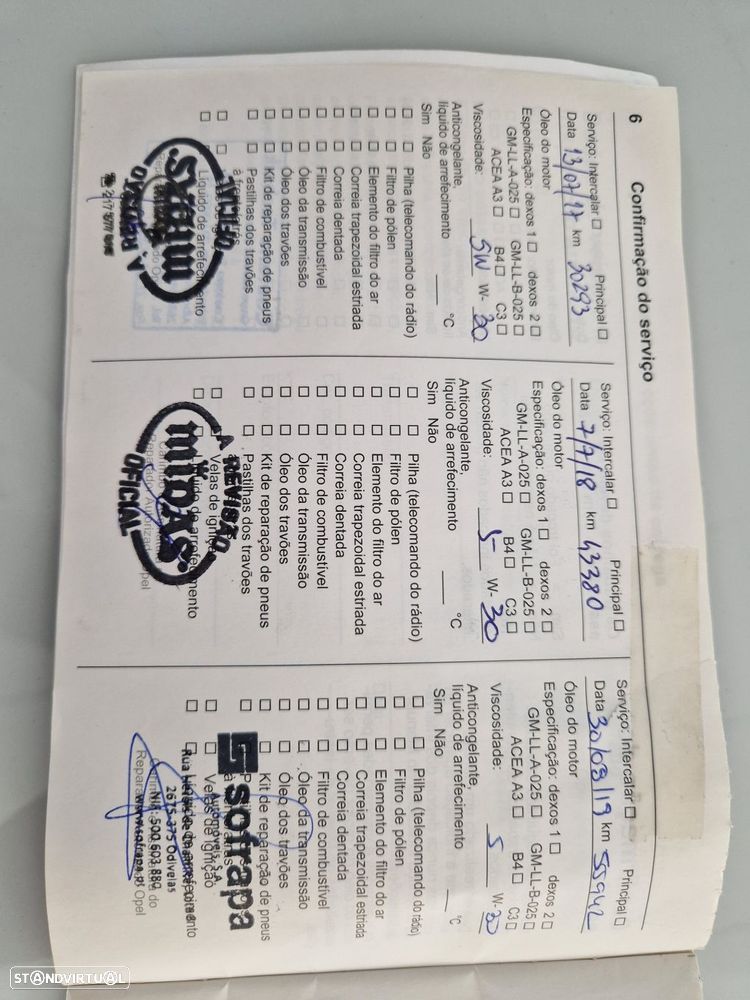 6
Confirmação do serviço
Serviço: Intercalar ☐ Principal ☐
Data 13/07/17 km 30293
Óleo do motor
Especificação: dexos 1 ☐ dexos 2 ☐
GM-LL-A-025 ☐ GM-LL-B-025 ☐
ACEA A3 ☐ B4 ☐ C3 ☐
Viscosidade: 5W W- 30
Anticongelante,
líquido de arrefecimento °C
Sim Não
☐ ☐ Pilha (telecomando do rádio)
☐ ☐ Filtro de pólen
☐ ☐ Elemento do filtro do ar
☐ ☐ Correia trapezoidal estriada
☐ ☐ Correia dentada
☐ ☐ Filtro de combustível
☐ ☐ Óleo da transmissão
☐ ☐ Óleo dos travões
☐ ☐ Kit de reparação de pneus
☐ ☐ Pastilhas dos travões
Líquido de arrefecimento
midas
OFICIAL
Serviço: Intercalar ☐ Principal ☐
Data 7/7/18 km 43380
Óleo do motor
Especificação: dexos 1 ☐ dexos 2 ☐
GM-LL-A-025 ☐ GM-LL-B-025 ☐
ACEA A3 ☐ B4 ☐ C3 ☐
Viscosidade: 5- W- 30
Anticongelante,
líquido de arrefecimento °C
Sim Não
☐ ☐ Pilha (telecomando do rádio)
☐ ☐ Filtro de pólen
☐ ☐ Elemento do filtro do ar
☐ ☐ Correia trapezoidal estriada
☐ ☐ Correia dentada
☐ ☐ Filtro de combustível
☐ ☐ Óleo da transmissão
☐ ☐ Óleo dos travões
☐ ☐ Kit de reparação de pneus
☐ ☐ Pastilhas dos travões
☐ ☐ Velas de ignição
A REVISÃO
midas
OFICIAL
Opel
Serviço: Intercalar ☐ Principal ☐
Data 30/08/19 km 55942
Óleo do motor
Especificação: dexos 1 ☐ dexos 2 ☐
GM-LL-A-025 ☐ GM-LL-B-025 ☐
ACEA A3 ☐ B4 ☐ C3 ☐
Viscosidade: 5 W- 30
Anticongelante,
líquido de arrefecimento °C
Sim Não
☐ ☐ Pilha (telecomando do rádio)
☐ ☐ Filtro de pólen
☐ ☐ Elemento do filtro do ar
☐ ☐ Correia trapezoidal estriada
☐ ☐ Correia dentada
☐ ☐ Filtro de combustível
☐ ☐ Óleo da transmissão
☐ ☐ Óleo dos travões
☐ ☐ Kit de reparação de pneus
☐ ☐ Velas de ignição
sofrapa
Automóveis, S.A.
2675-375 Odivelas
Nif: 500 603 880
www.sofrapa.pt
Opel
STANDVIRTUAL